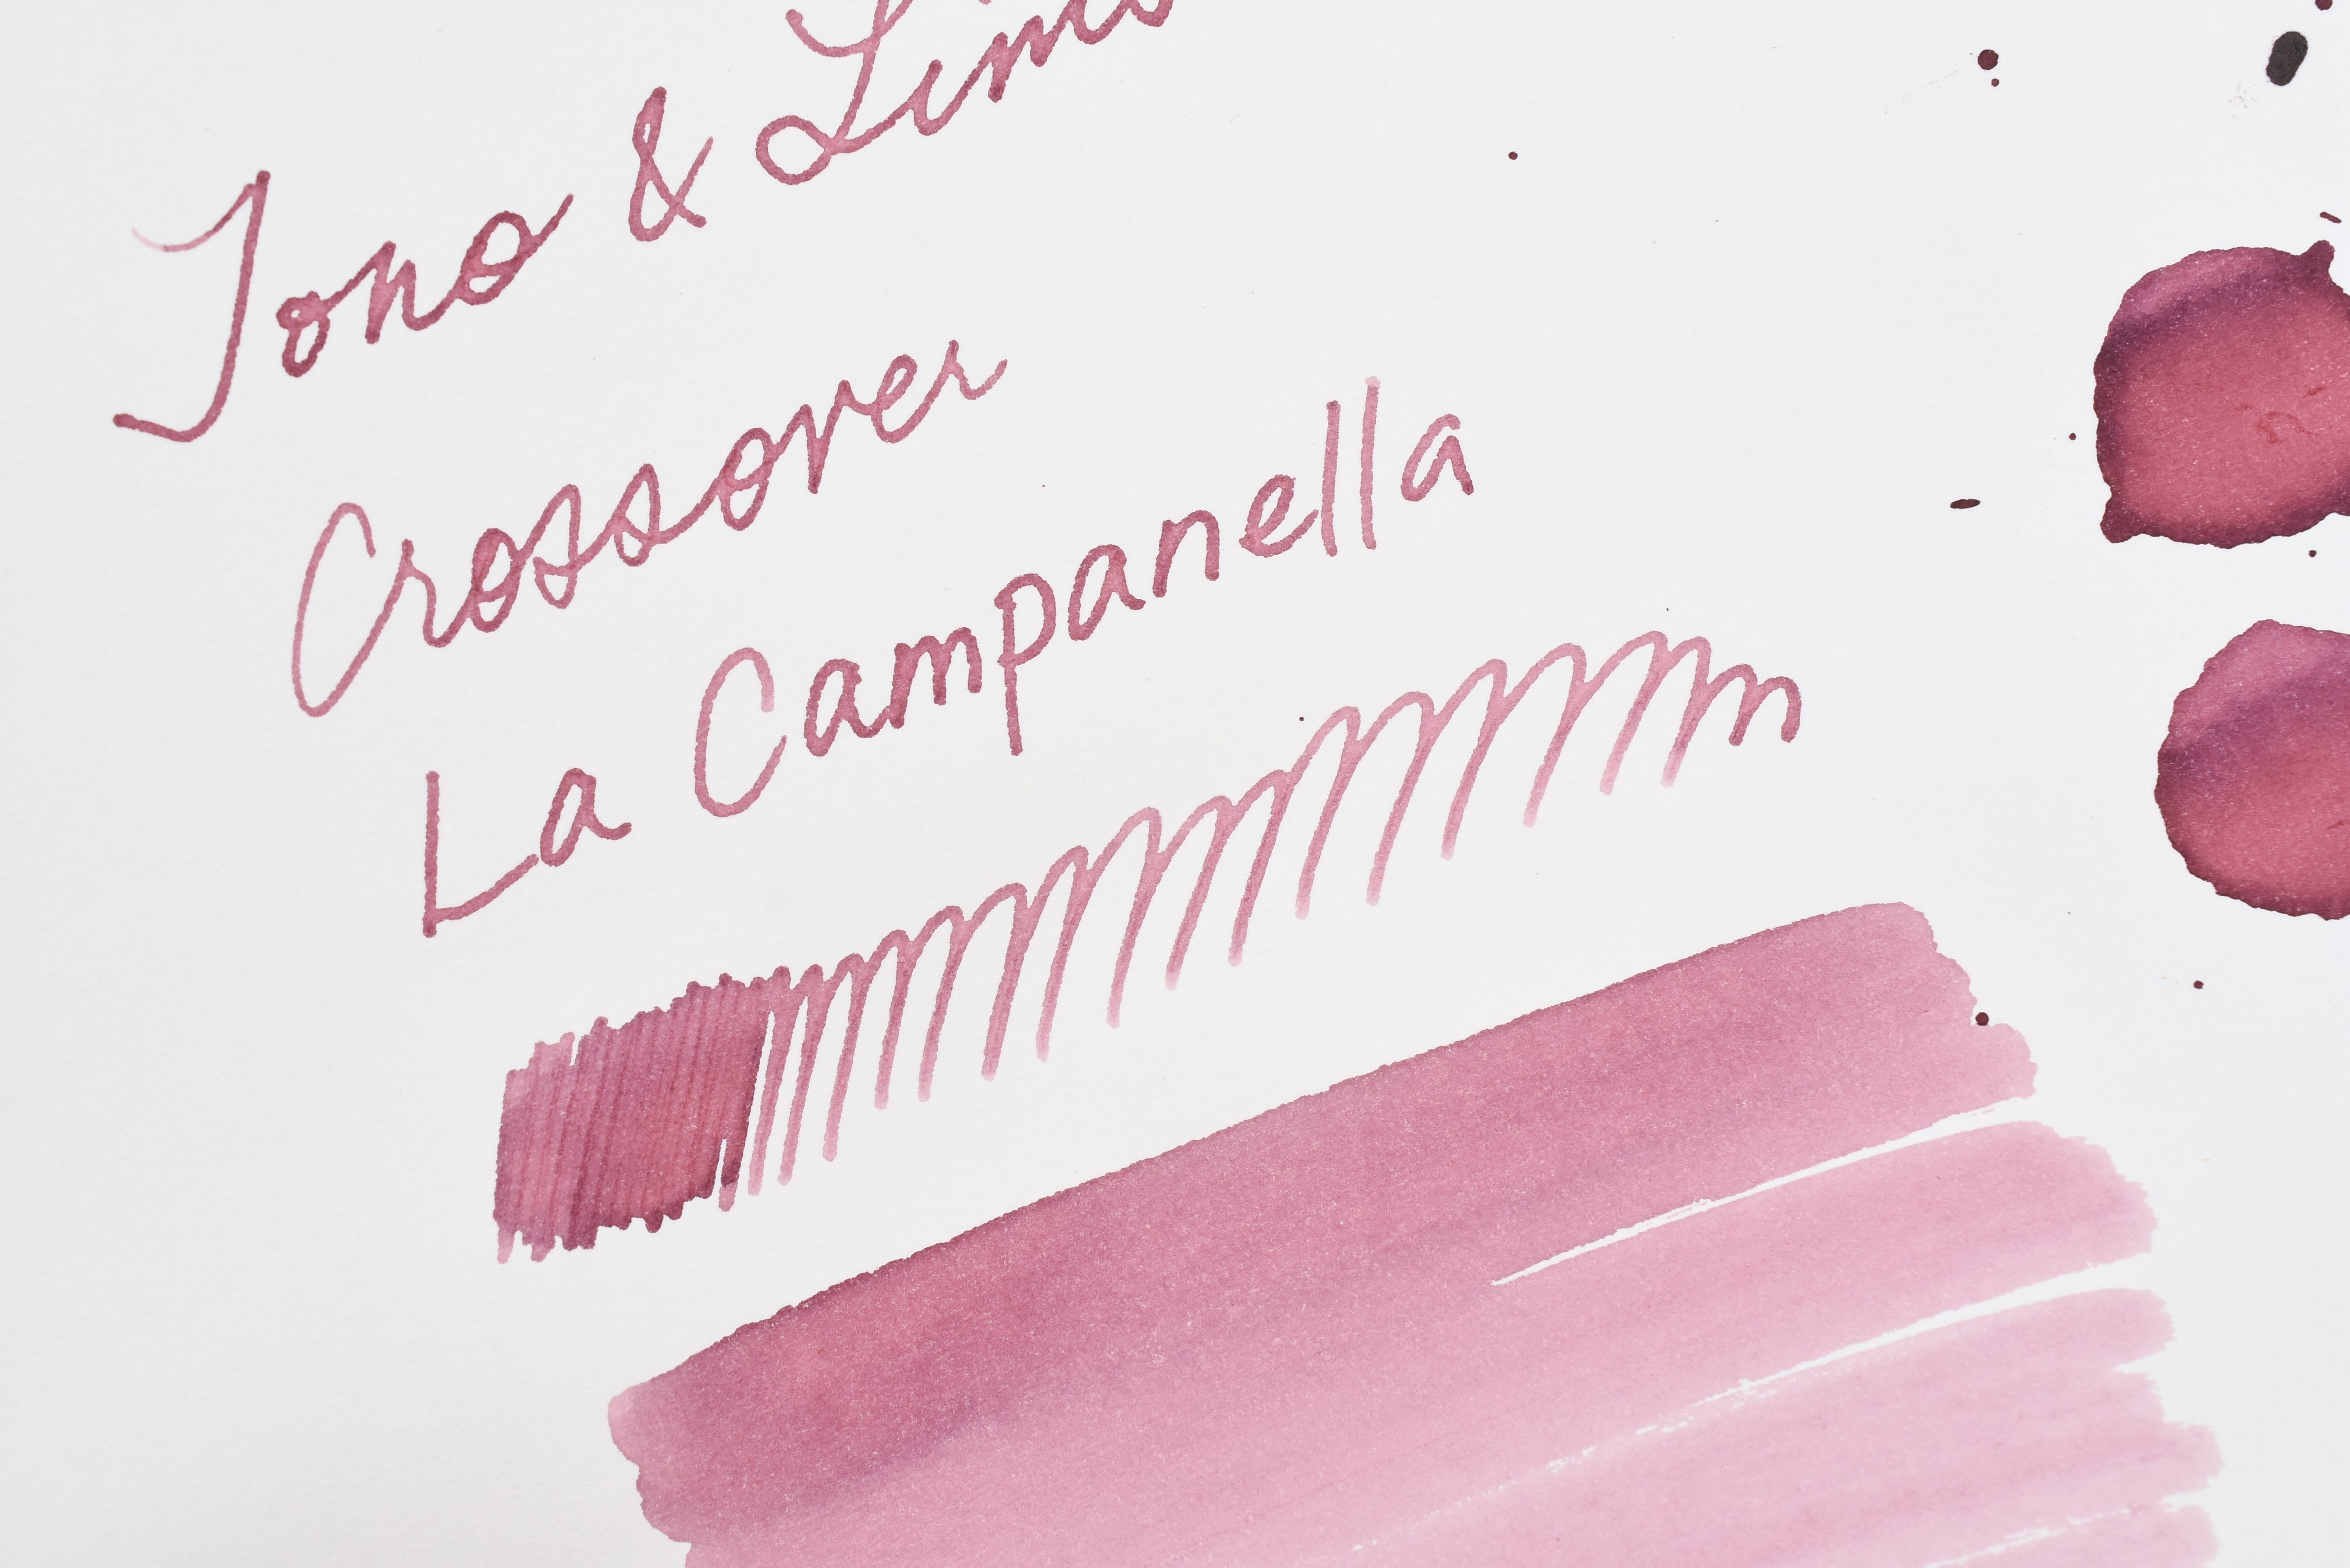 Tono & Lims
Crossover
La Campanella